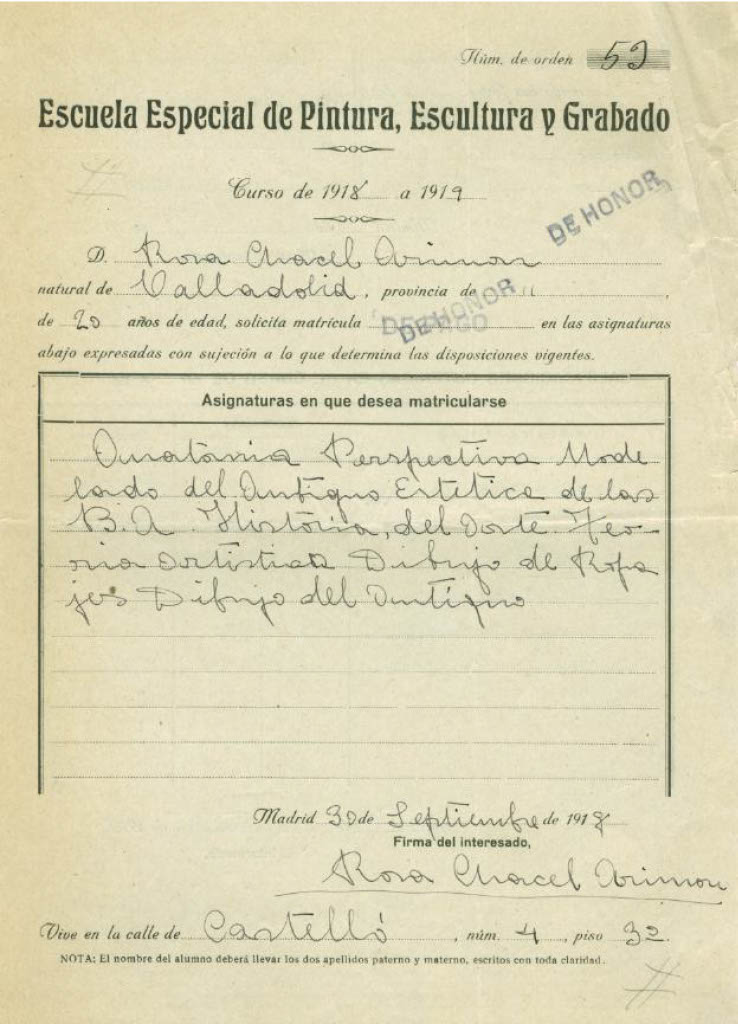 Núm. de orden 59
Escuela Especial de Pintura, Escultura y Grabado
Curso de 1918 a 1919
DE HONOR
D. Rosa Chacel Arimon
natural de Valladolid, provincia de "
DE HONOR
de 20 años de edad, solicita matrícula en las asignaturas
abajo expresadas con sujeción a lo que determina las disposiciones vigentes.
Asignaturas en que desea matricularse
Anatomia Perspectiva Mode
lado del Antiguo Estética de las
B.A. Historia, del Arte Teo-
ria Artística Dibujo de Ropa
jes Dibujo del Antiguo
Madrid 30 de Septiembre de 1918
Firma del interesado,
Rosa Chacel Arimon
Vive en la calle de Castelló, núm. 4, piso 3º
NOTA: El nombre del alumno deberá llevar los dos apellidos paterno y materno, escritos con toda claridad.